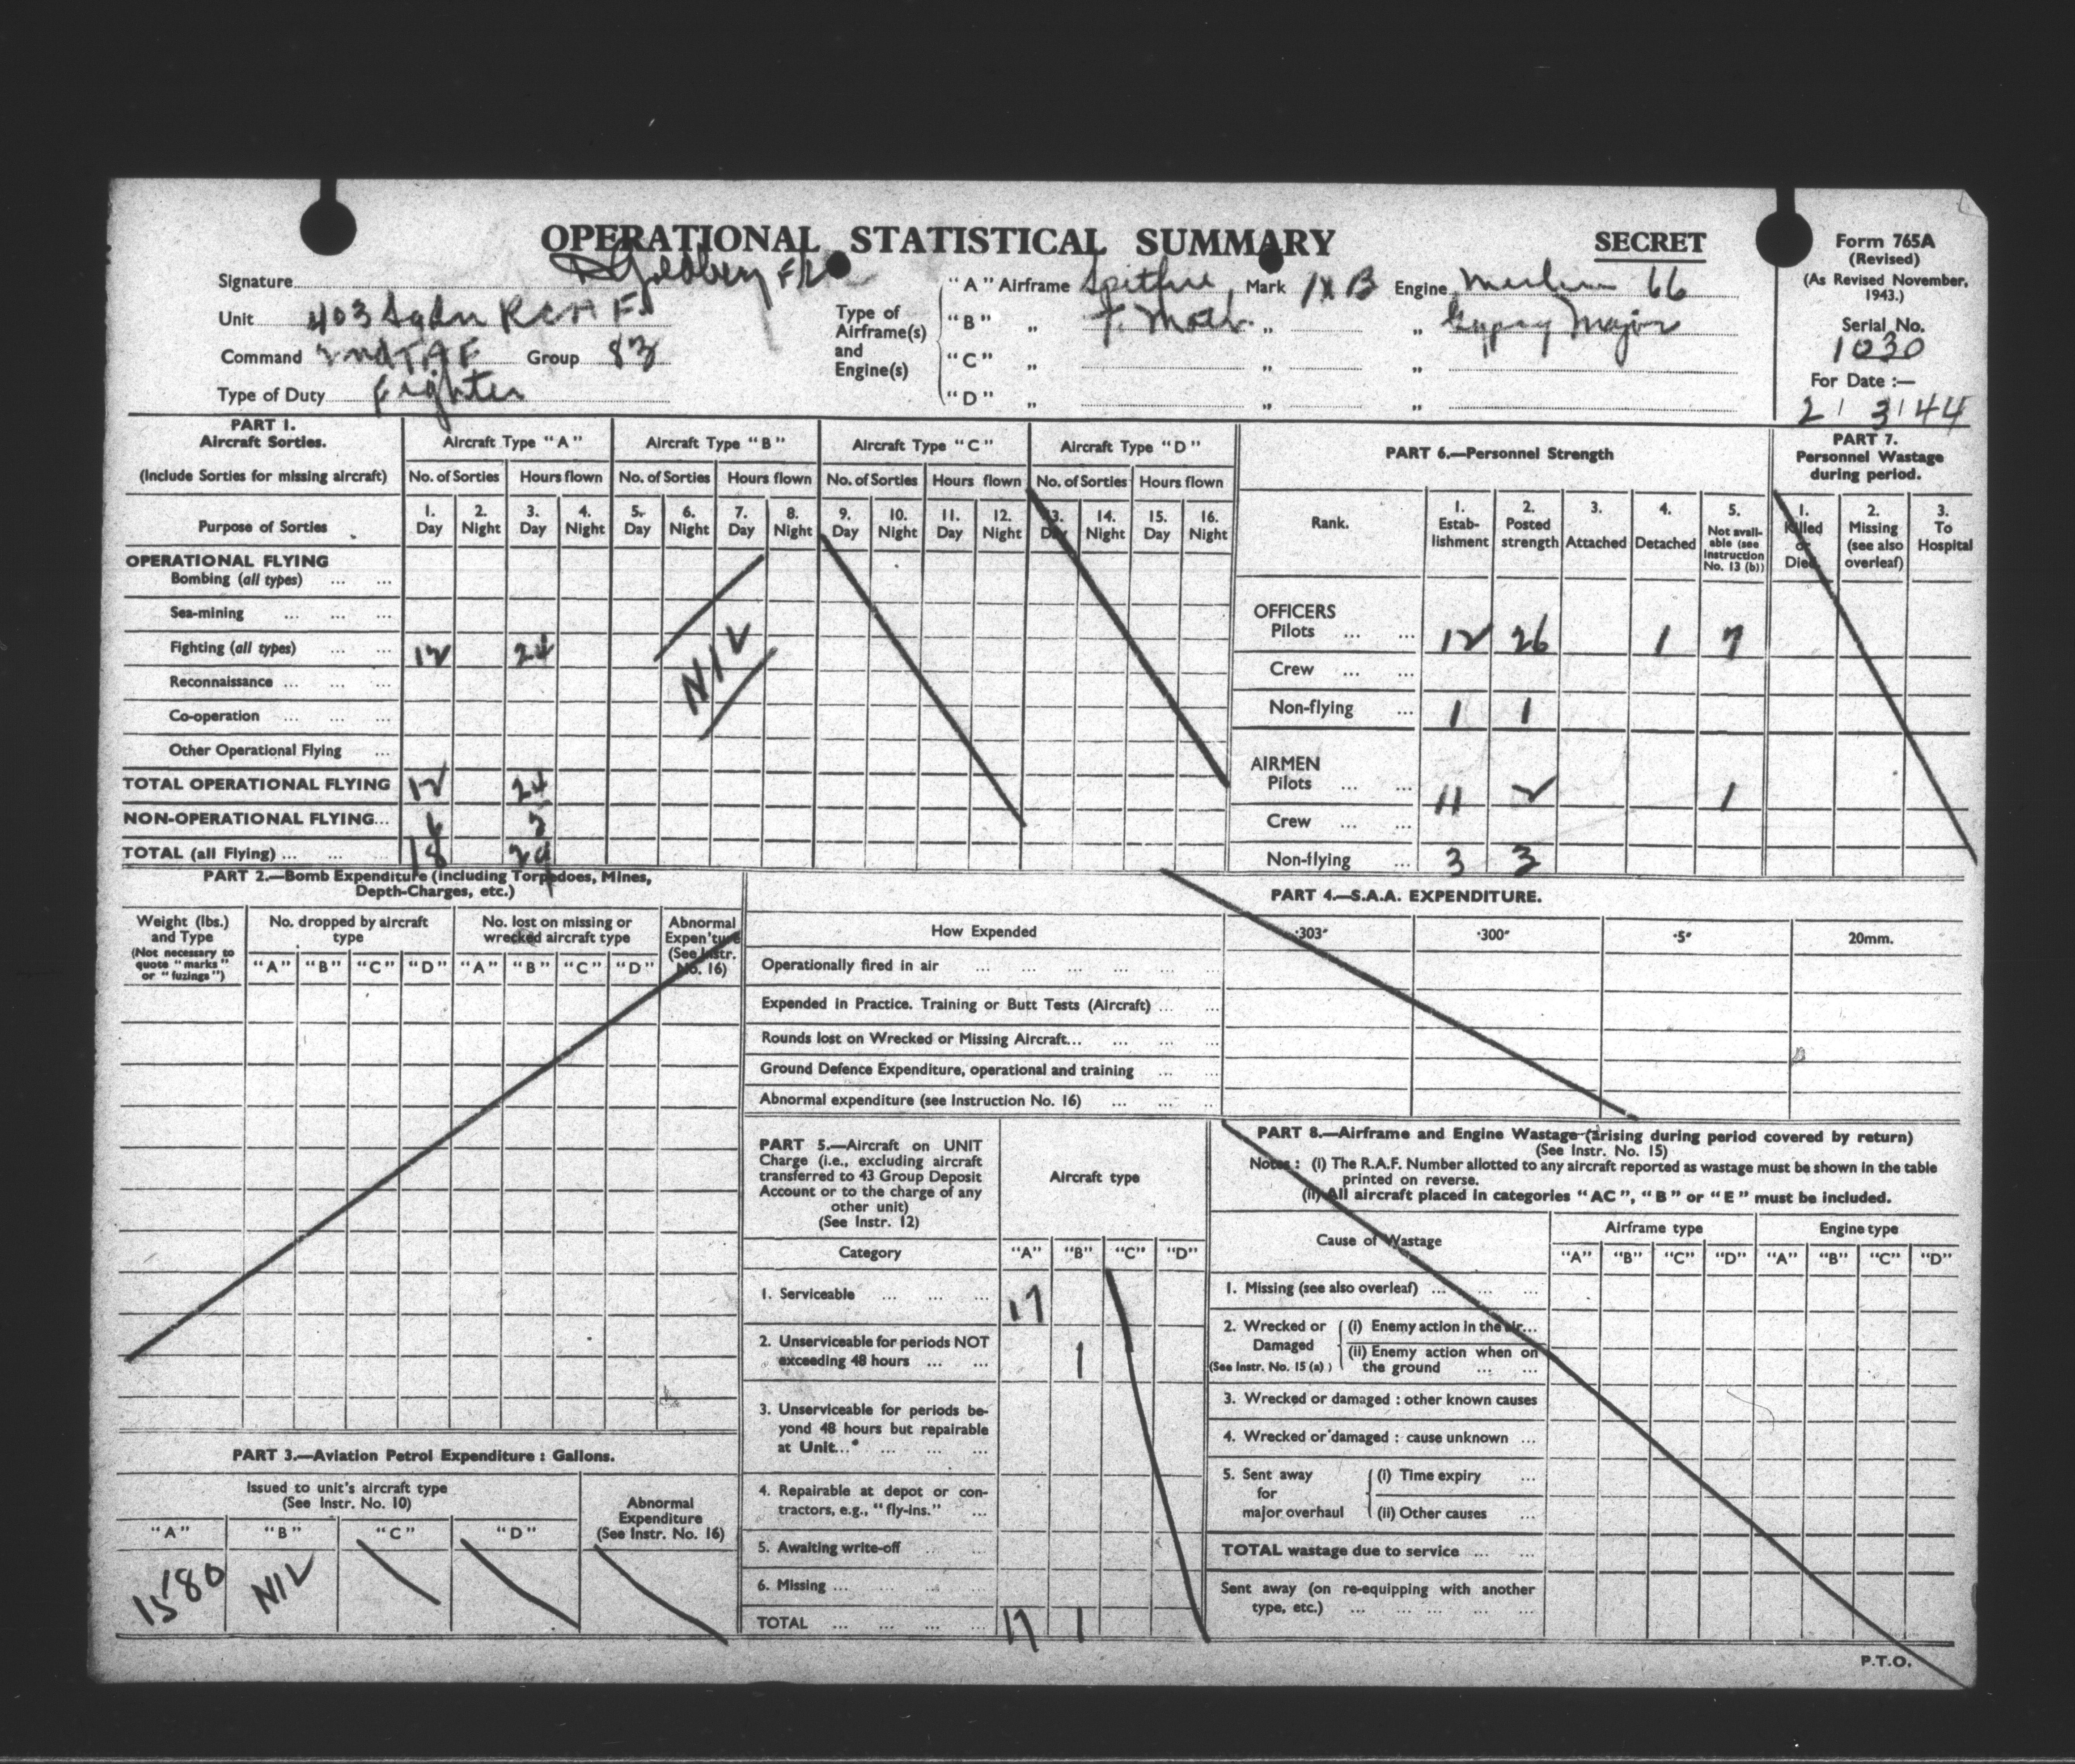 OPERATIONAL STATISTICAL SUMMARY
SECRET
Form 765A
(Revised)
(As Revised November, 1943.)
Serial No.
1030
For Date :—
2 3 44
Signature Goldberg F/L
Unit 403 Sqdn RCAF
Command 2nd TAF Group 83
Type of Duty Fighter
Type of Airframe(s) and Engine(s)
"A" Airframe Spitfire Mark IX B Engine Merlin 66
"B" „ T. Moth „ „ Gypsy Major
"C" „ „ „
"D" „ „ „
PART 1.
Aircraft Sorties.
(Include Sorties for missing aircraft)
Purpose of Sorties
Aircraft Type "A" Aircraft Type "B" Aircraft Type "C" Aircraft Type "D"
No. of Sorties Hours flown No. of Sorties Hours flown No. of Sorties Hours flown No. of Sorties Hours flown
1. Day 2. Night 3. Day 4. Night 5. Day 6. Night 7. Day 8. Night 9. Day 10. Night 11. Day 12. Night 13. Day 14. Night 15. Day 16. Night
OPERATIONAL FLYING
Bombing (all types) ... ...
Sea-mining ... ... ...
Fighting (all types) ... ... 12 24
NIL
Reconnaissance ... ... ...
Co-operation ... ... ...
Other Operational Flying ...
TOTAL OPERATIONAL FLYING 12 24
NON-OPERATIONAL FLYING... 6 5
TOTAL (all Flying) ... ... ... 18 29
PART 6.—Personnel Strength
Rank. 1. Establishment 2. Posted strength 3. Attached 4. Detached 5. Not available (see Instruction No. 13 (b))
OFFICERS
Pilots ... ... 12 26 1 7
Crew ... ...
Non-flying ... 1 1
AIRMEN
Pilots ... ... 11 2 1
Crew ... ...
Non-flying ... 3 3
PART 7.
Personnel Wastage during period.
1. Killed or Died 2. Missing (see also overleaf) 3. To Hospital
PART 2.—Bomb Expenditure (including Torpedoes, Mines, Depth-Charges, etc.)
Weight (lbs.) and Type
(Not necessary to quote "marks" or "fuzings")
No. dropped by aircraft type
No. lost on missing or wrecked aircraft type
Abnormal Expen'ture (See Instr. No. 16)
"A" "B" "C" "D" "A" "B" "C" "D"
PART 4.—S.A.A. EXPENDITURE.
How Expended ·303" ·300" ·5" 20mm.
Operationally fired in air ... ... ... ... ... ...
Expended in Practice. Training or Butt Tests (Aircraft) ... ...
Rounds lost on Wrecked or Missing Aircraft... ... ... ...
Ground Defence Expenditure, operational and training ... ...
Abnormal expenditure (see Instruction No. 16) ... ... ...
PART 3.—Aviation Petrol Expenditure : Gallons.
Issued to unit's aircraft type
(See Instr. No. 10)
Abnormal Expenditure (See Instr. No. 16)
"A" "B" "C" "D"
1580 NIL
PART 5.—Aircraft on UNIT Charge (i.e., excluding aircraft transferred to 43 Group Deposit Account or to the charge of any other unit)
(See Instr. 12)
Aircraft type
Category "A" "B" "C" "D"
1. Serviceable ... ... ... 17
2. Unserviceable for periods NOT exceeding 48 hours ... ... 1
3. Unserviceable for periods beyond 48 hours but repairable at Unit... ... ... ...
4. Repairable at depot or contractors, e.g., "fly-ins." ...
5. Awaiting write-off ... ...
6. Missing ... ... ... ...
TOTAL ... ... ... ... 17 1
PART 8.—Airframe and Engine Wastage (arising during period covered by return)
(See Instr. No. 15)
Notes : (i) The R.A.F. Number allotted to any aircraft reported as wastage must be shown in the table printed on reverse.
(ii) All aircraft placed in categories "AC", "B" or "E" must be included.
Cause of Wastage Airframe type Engine type
"A" "B" "C" "D" "A" "B" "C" "D"
1. Missing (see also overleaf) ... ... ...
2. Wrecked or Damaged (See Instr. No. 15 (a) )
(i) Enemy action in the air...
(ii) Enemy action when on the ground ... ...
3. Wrecked or damaged : other known causes
4. Wrecked or damaged : cause unknown ...
5. Sent away for major overhaul
(i) Time expiry ...
(ii) Other causes ...
TOTAL wastage due to service ... ...
Sent away (on re-equipping with another type, etc.) ... ... ... ... ...
P.T.O.